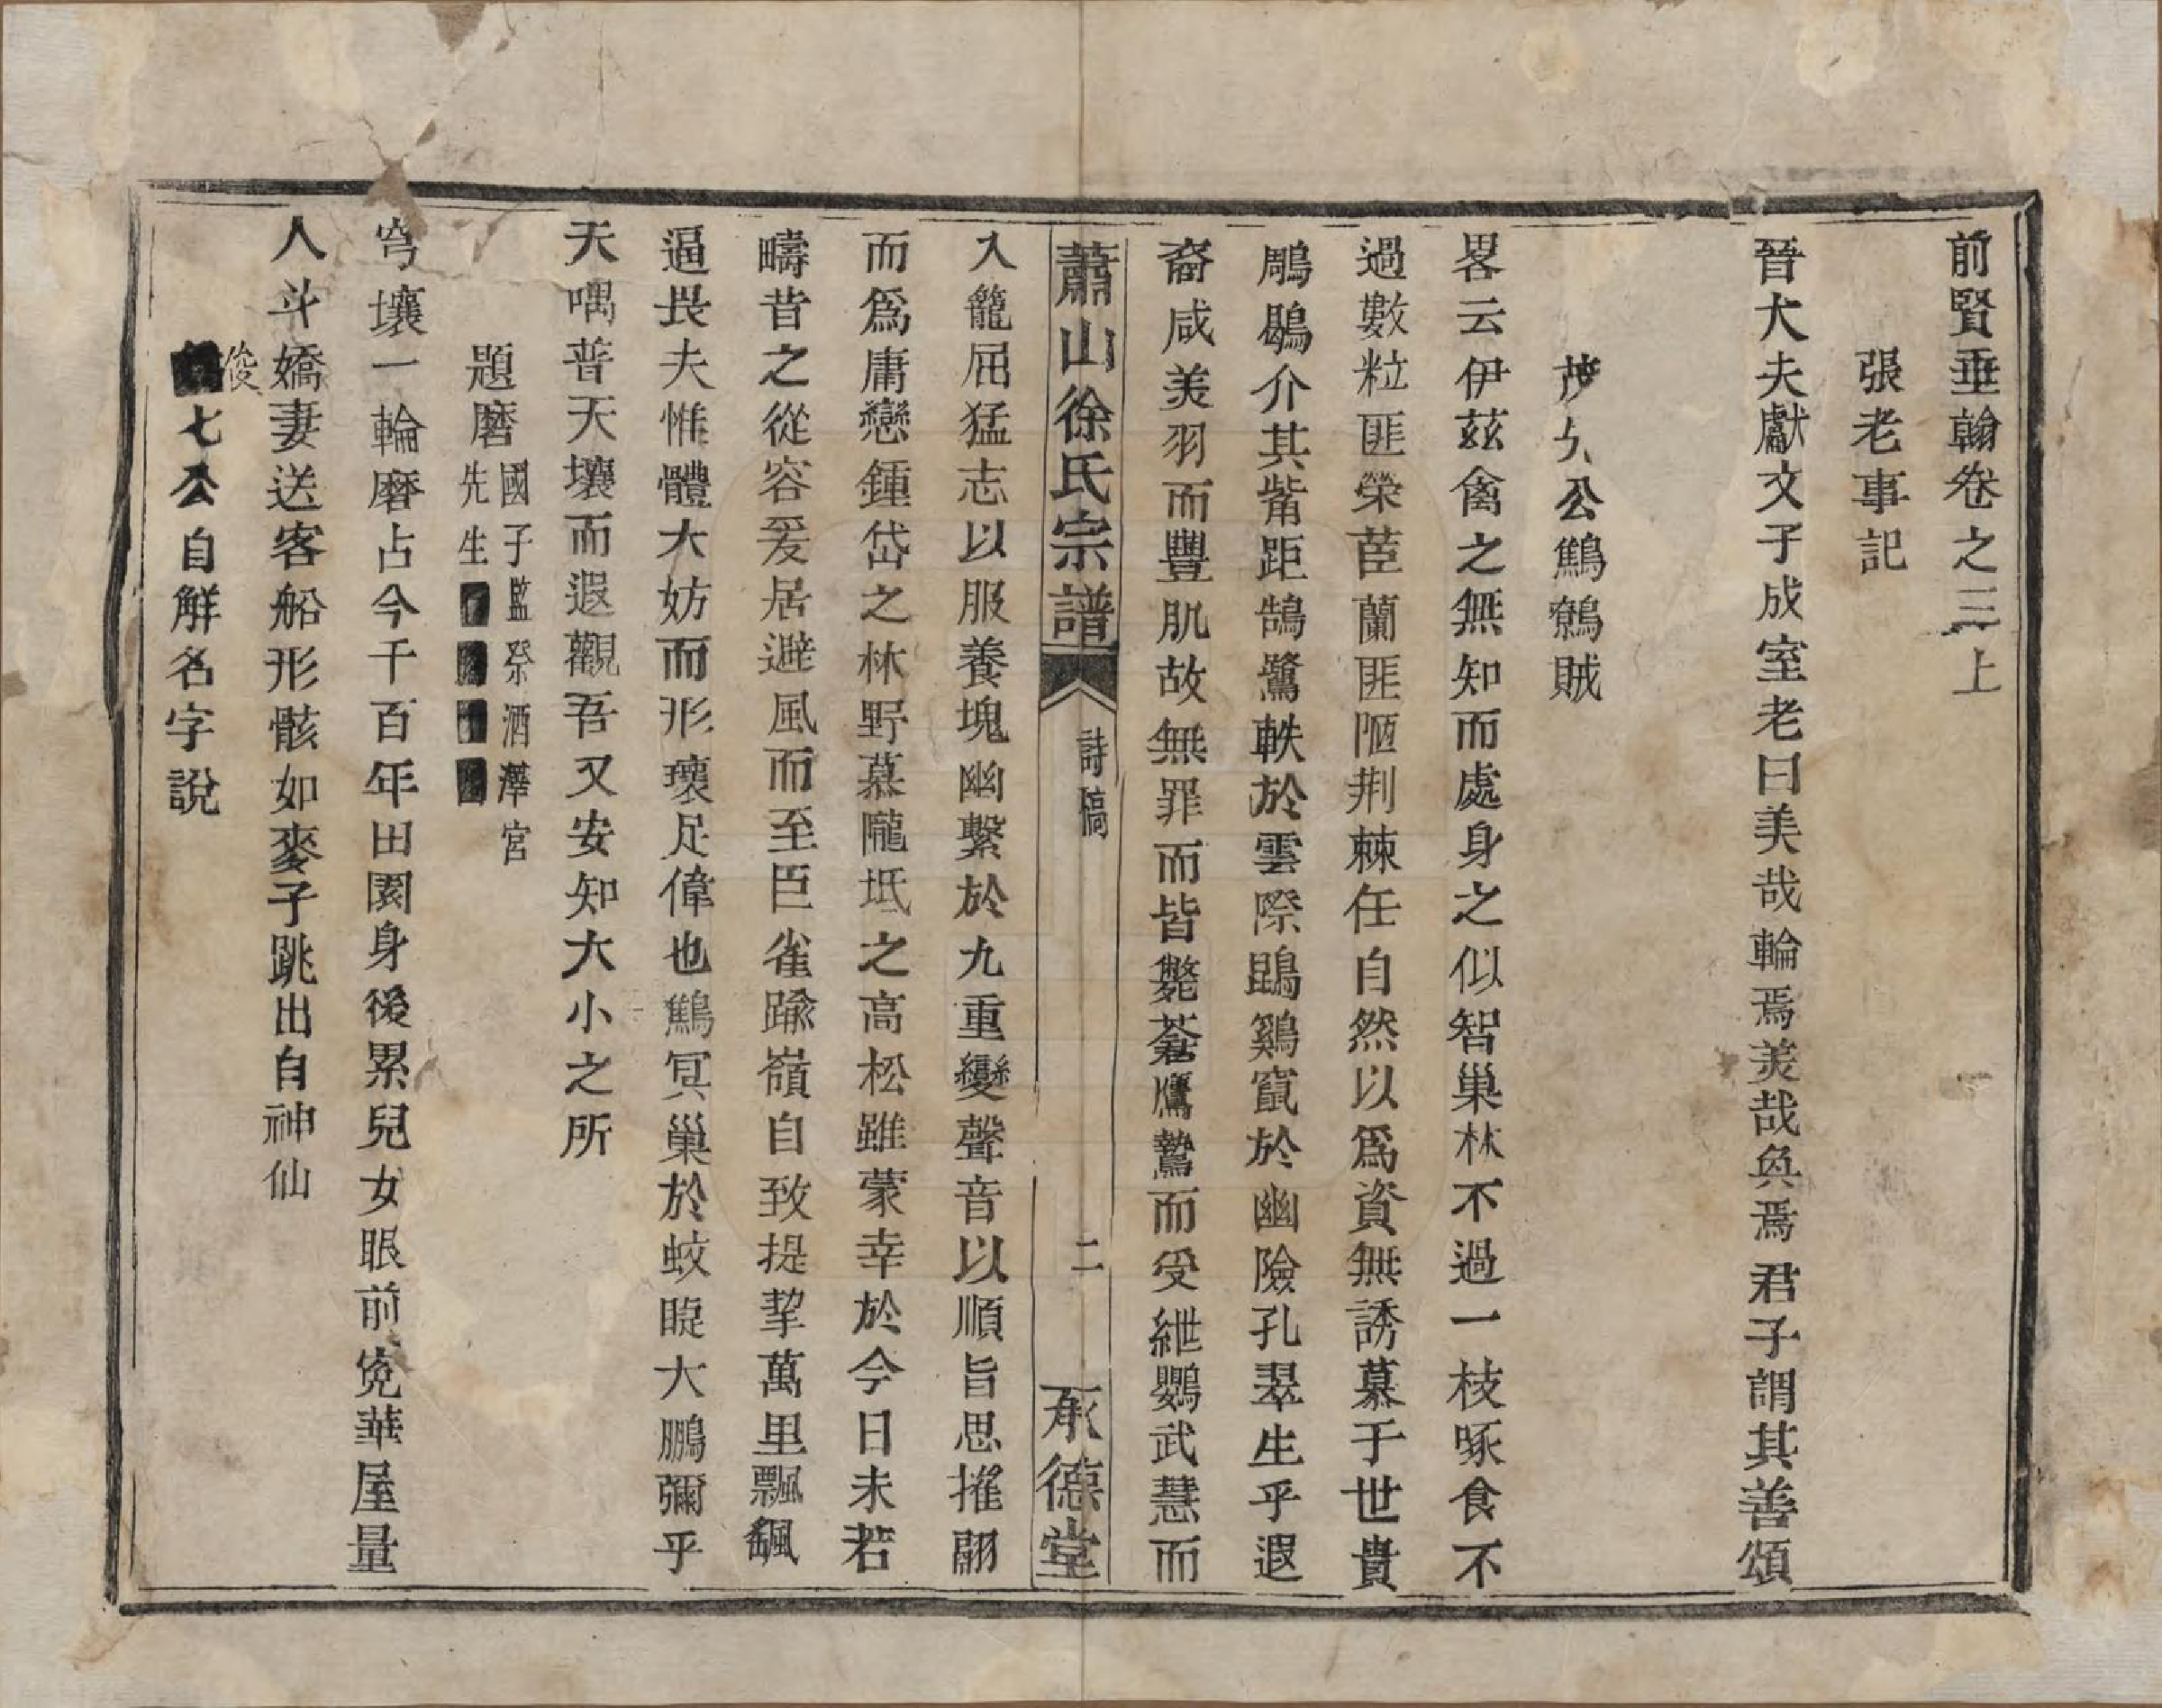 前賢垂翰卷之三上
張老事記
晉大夫獻文子成室老曰美哉輪焉美哉奐焉君子謂其善頌
公鷦鷯賊
畧云伊茲禽之無知而處身之似智巢林不過一枝啄食不
過數粒匪榮茝蘭匪陋荆棘任自然以爲資無誘慕于世貴
鵰鶡介其觜距鵠鷺軼於雲際鵾鷄竄於幽險孔翠生乎遐
裔咸美羽而豐肌故無罪而皆斃蒼鷹鷙而受紲鸚武慧而
蕭山徐氏宗譜
詩稿
二
承德堂
入籠屈猛志以服養塊幽繫於九重變聲音以順旨思摧翮
而爲庸戀鍾岱之林野慕隴坻之高松雖蒙幸於今日未若
疇昔之從容爰居避風而至巨雀踰嶺自致提挈萬里飄颻
逼畏夫惟體大妨而形瓌足偉也鷦冥巢於蚊睫大鵬彌乎
天喁普天壤而遐觀吾又安知大小之所
題磨 國子監祭酒澤宮
先生
穹壤一輪磨占今千百年田園身後累兒女眼前寃華屋量
人斗嬌妻送客船形骸如麥子跳出自神仙
俊
七公自解名字說